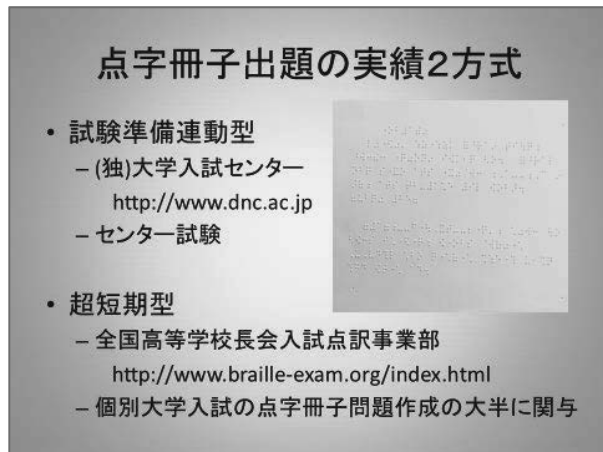 点字冊子出題の実績2方式
• 試験準備連動型
– (独)大学入試センター
http://www.dnc.ac.jp
– センター試験
• 超短期型
– 全国高等学校長会入試点訳事業部
http://www.braille-exam.org/index.html
– 個別大学入試の点字冊子問題作成の大半に関与